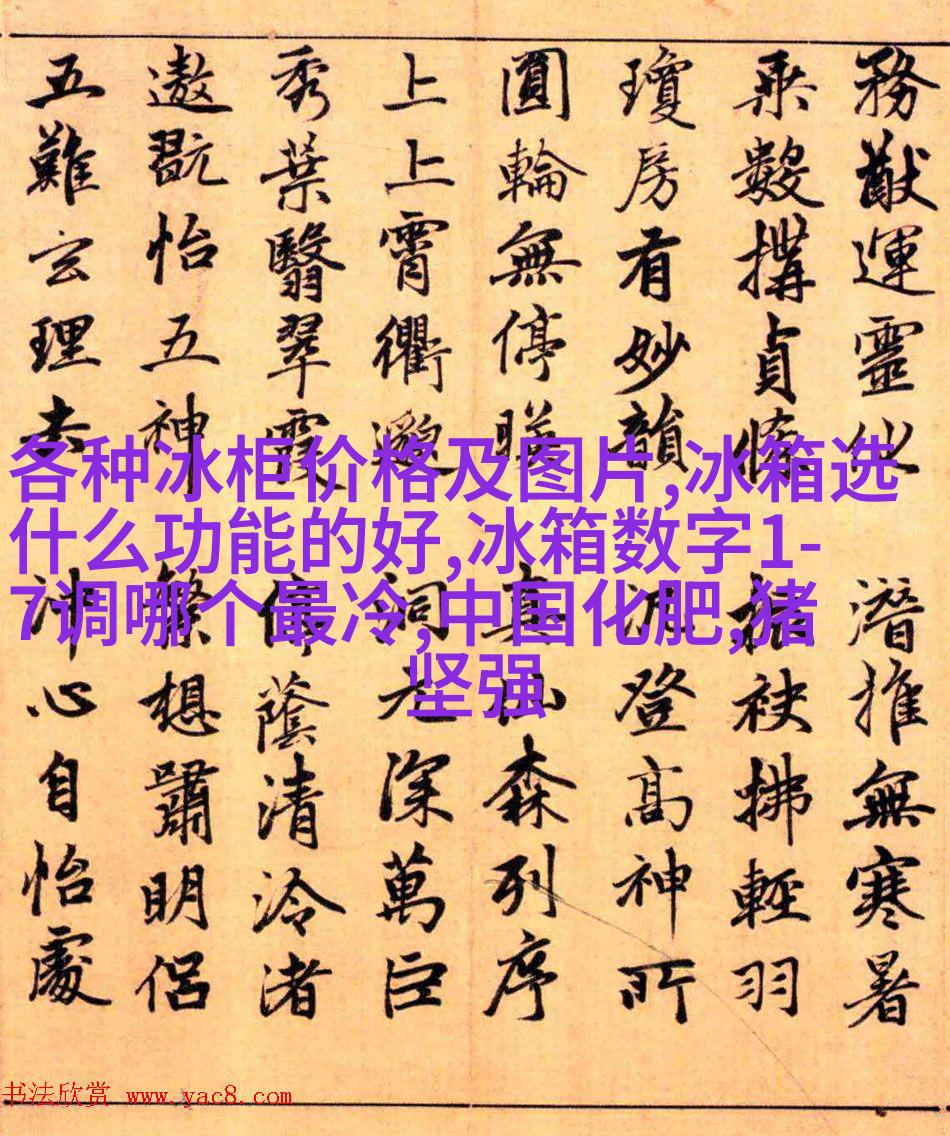 務猷運靈化潛推無寒暑
乘數構貞條振袂拂輕羽
瓊房有妙韻登高神所
圓輪無停暎真仙森列序
上上霄衢邈深萬巨
秀葉翳翠霞停蔭清泠渚
遨翫怡五神繁想嘯明侶
五難玄理去沖心自怡處
各种冰柜价格及图片,冰箱选
什么功能的好,冰箱数字1-
7调哪个最冷,中国化肥,猪
坚强
书法欣赏 www.yac8.com